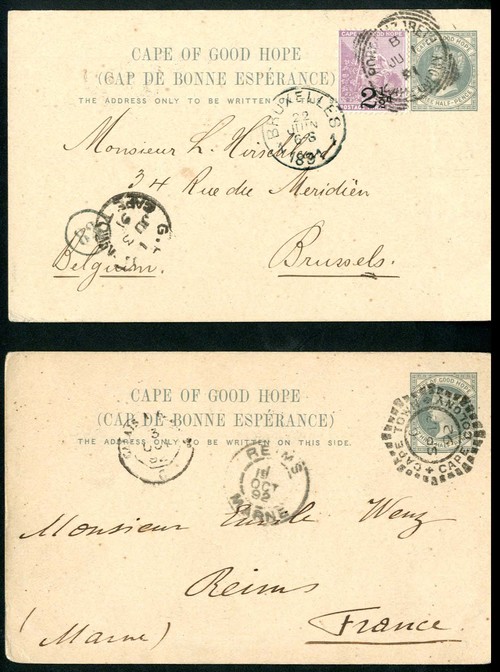 CAPE OF GOOD HOPE
(CAP DE BONNE ESPÉRANCE)
THE ADDRESS ONLY TO BE WRITTEN
BRUXELLES
22
JUIN
1891
2½d
Monsieur L. Hirschler
34 Rue du Meridién
G.
CAPE TOWN
Belgium.
Brussels.
CAPE OF GOOD HOPE
(CAP DE BONNE ESPÉRANCE)
THE ADDRESS ONLY TO BE WRITTEN ON THIS SIDE.
CAPE TOWN
CAPE COLONY
REIMS
OCT
92
MARNE
Monsieur Emile Wenz
Reims
(Marne)
France.